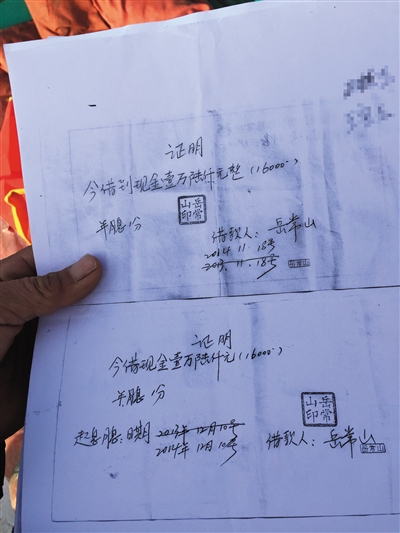 证明
今借到现金壹万陆仟元整(16000)
年息1分
岳常山印
借款人:岳常山
2014.11.18号
2013.11.18号
岳常山
证明
今借现金壹万陆仟元(16000)
年息1分
岳常山印
起息:日期 2013年12月10号
借款人:岳常山
2014年12月10号
岳常山